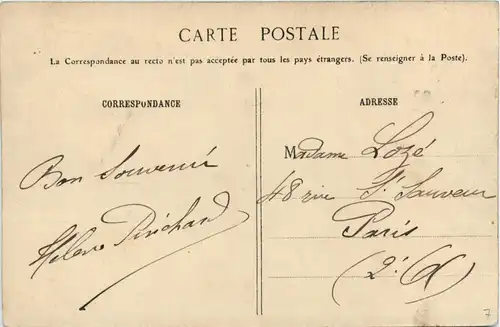 CARTE POSTALE
La Correspondance au recto n'est pas acceptée par tous les pays étrangers. (Se renseigner à la Poste).
CORRESPONDANCE
Bon Souvenir
Helene
ADRESSE
Madame Lozé
48 rue St. Sauveur
Paris
(2e
7